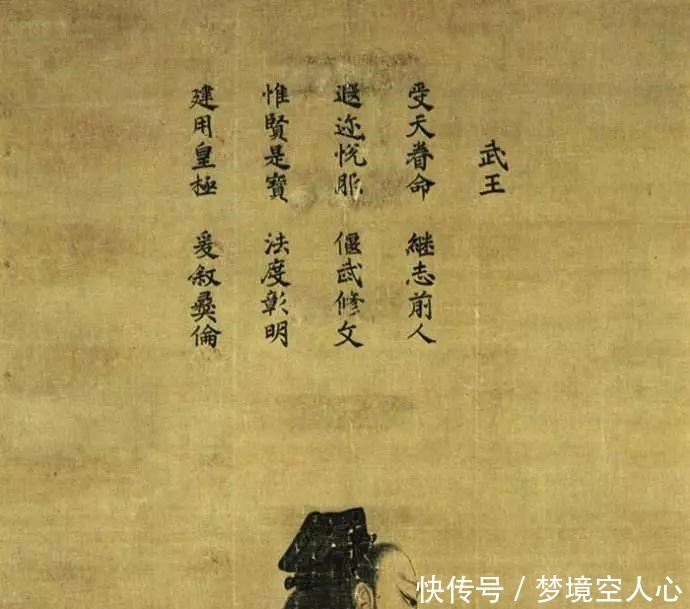 武王
受天眷命 継志前人
遐迩悦服 偃武修文
惟賢是寶 法度彰明
建用皇極 爰叙彝倫
快传号/梦境空人心